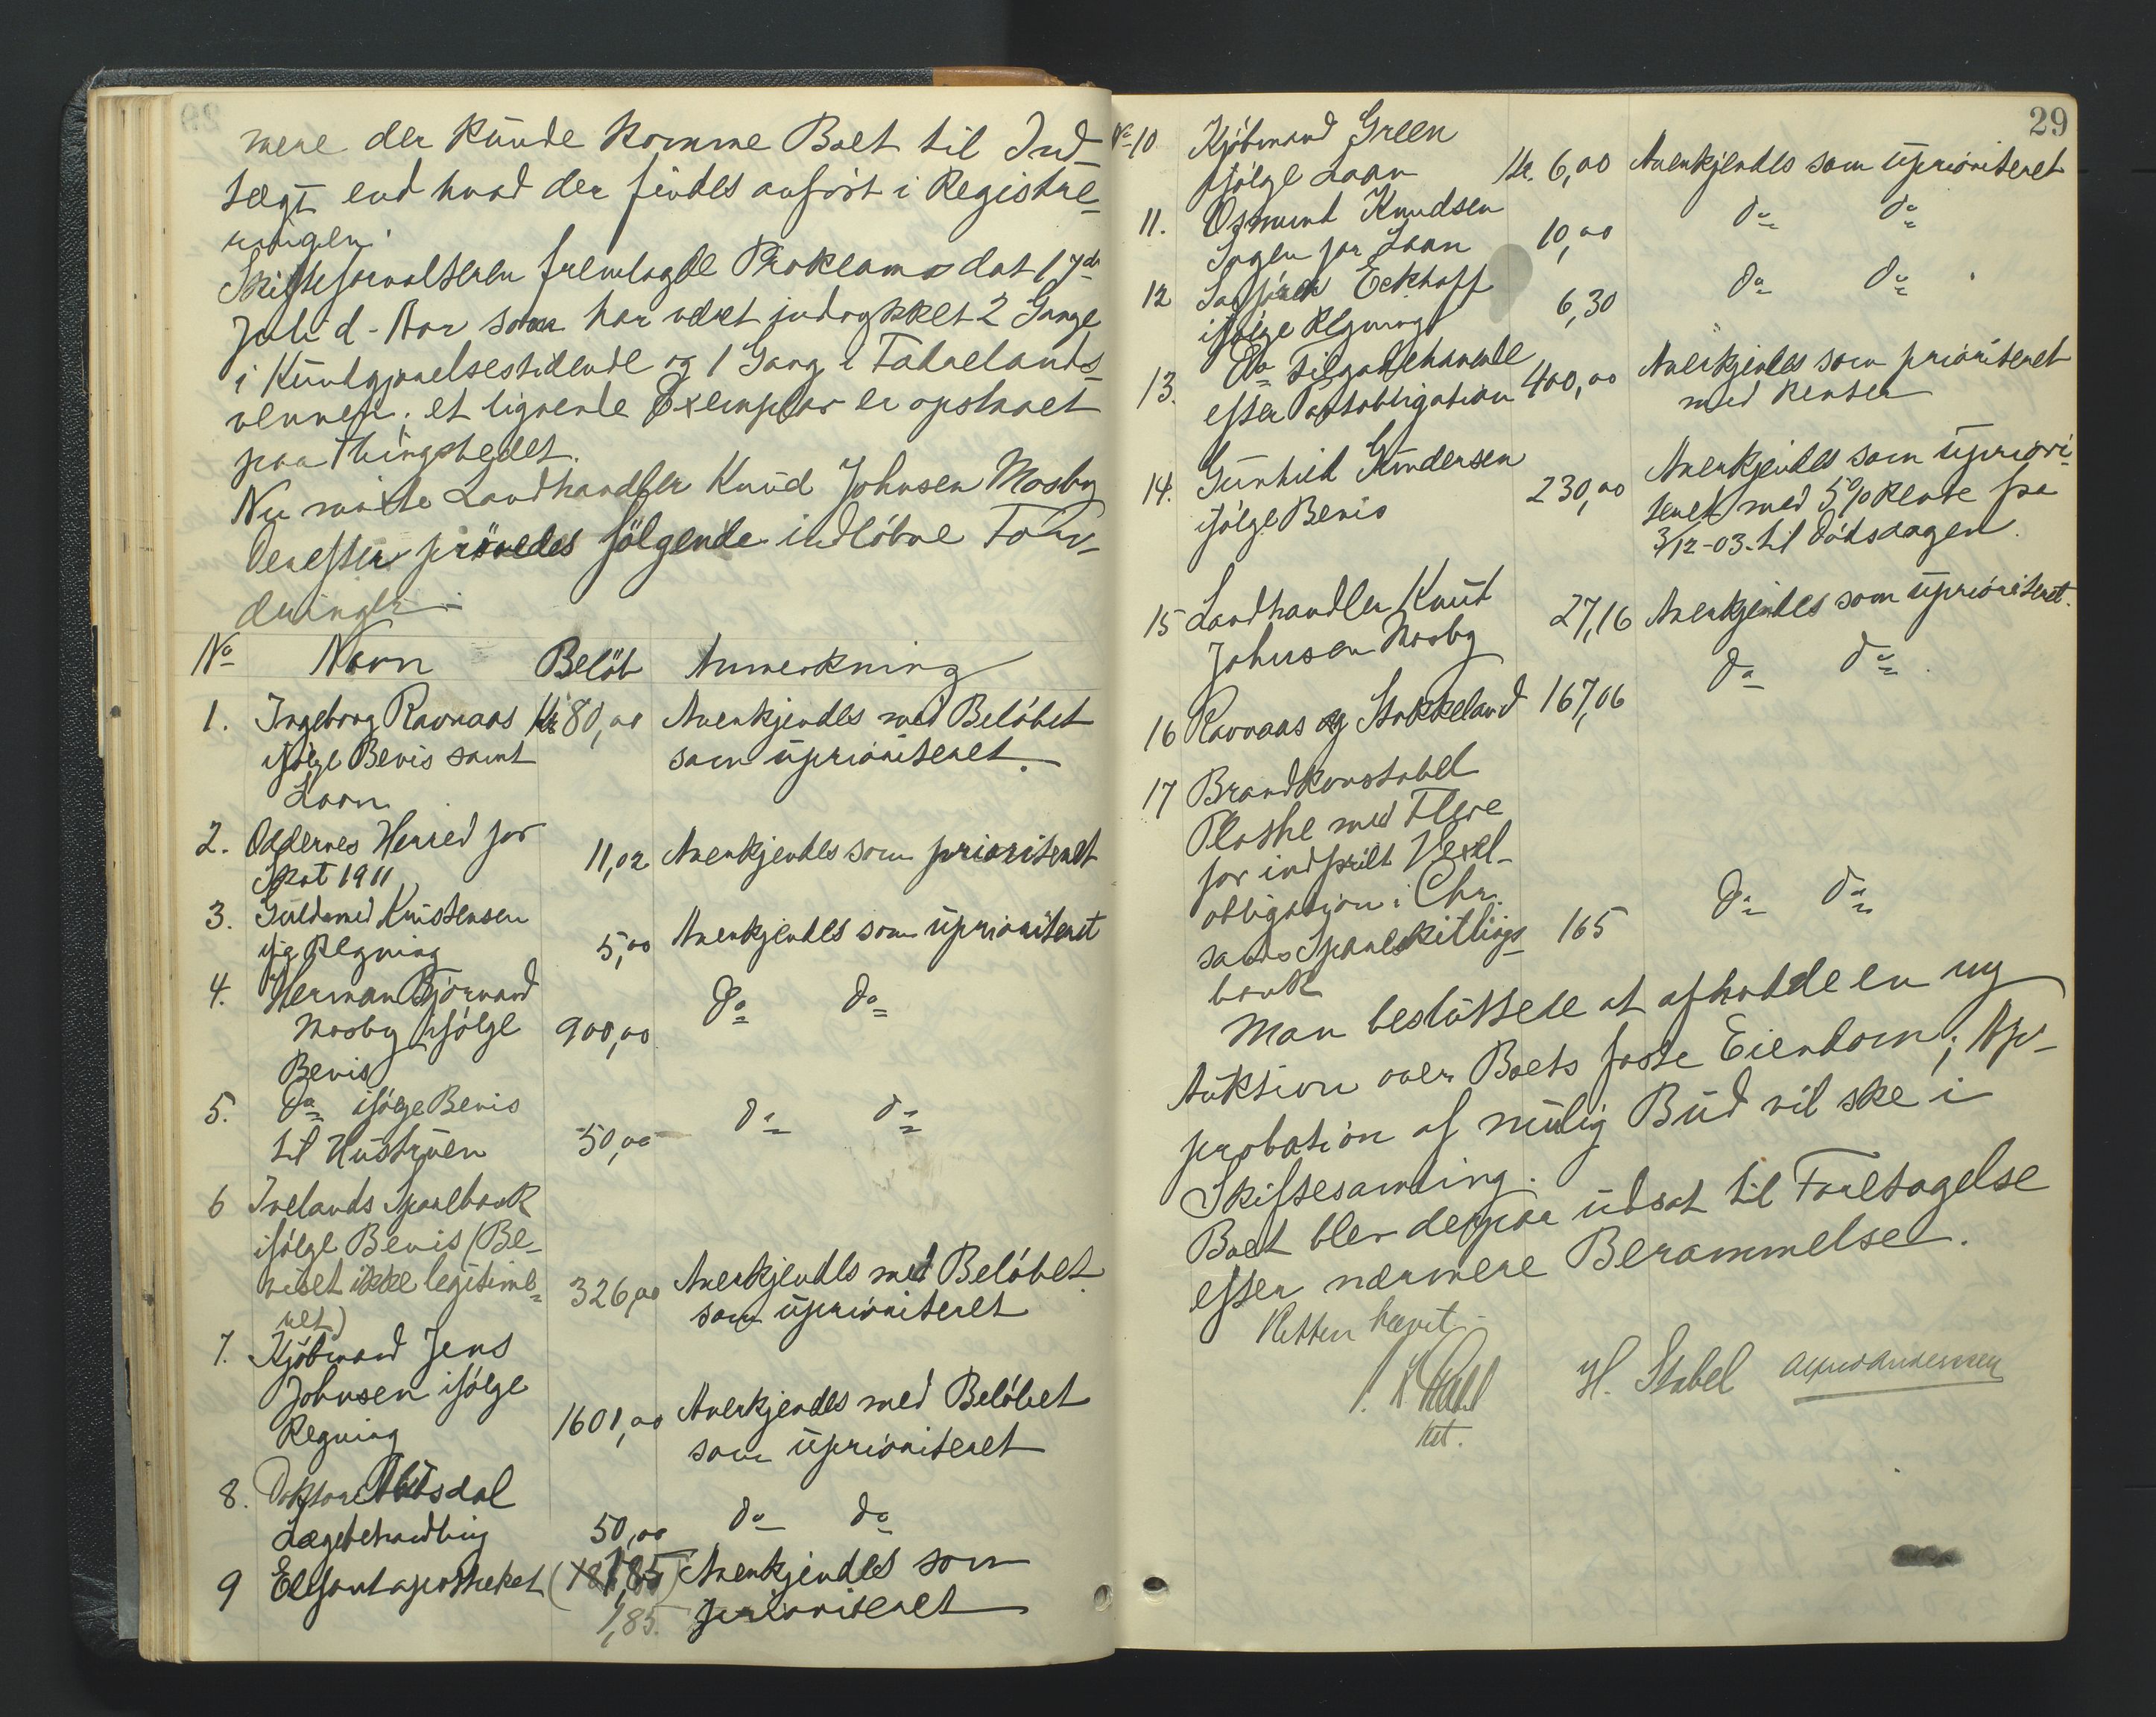 mere der kunde komme Boet til Ind-
tægt end hvad der findes anført i Registre-
ringen.
Skifteforvalteren fremlagde Proklama dat 17de
Juli d. Aar som har været indrykket 2 Gange
i Kundgjørelsestidende og 1 Gang i Fædrelands-
vennen; et lignende Exemplar er opslaaet
paa Thingstedet.
Nu mødte Landhandler Knud Johnsen Mosby
Derefter prøvedes følgende indløbne For-
dringer:
No Navn Beløb Anmerkning
1. Ingeborg Ravnaas Kr 80,00 Anerkjendes med Beløbet
ifølge Bevis samt som uprioriteret.
Laan
2. Oddernes Herred for
Skat 1911 11,02 Anerkjendes som prioriteret
3. Guldsmed Kristensen
Regning 5,00 Anerkjendes som uprioriteret
4. Herman Bjørnard do do
Mosby ifølge 900,00
Bevis
5. do ifølge Bevis do do
til Hustruen 50,00
6 Ivelands Sparebank
ifølge Bevis (Be-
viset ikke legitime- 326,00 Anerkjendes med Beløbet
ret) som uprioriteret
7. Kjøbmand Jens
Johnsen ifølge
Regning 1601,00 Anerkjendes med Beløbet
som uprioriteret
8. Doktor
Lægebehandling 50,00 do do
9 Elefantapotheket Anerkjendes som
1,85. prioriteret
29
No 10 Kjøbmand Green
ifølge Laan Kr. 6,00 Anerkjendes som uprioriteret
11. Osmund Knudsen do do
for Laan 10,00
12 Eckhoff do do
ifølge Regning 6,30
13. do Tilgodehavende
efter Pantobligation 400,00 Anerkjendes som prioriteret
med Renter
14. Gunhild Gundersen Anerkjendes som upriori-
ifølge Bevis 230,00 teret med 5% Rente fra
3/12-03 til Dødsdagen.
15 Landhandler Knut 27,16 Anerkjendes som uprioriteret.
Johnsen Mosby
16 Ravnaas og Stokkeland 167,06 do do
17 Brandkonstabel
med Flere
for indfriet Vexel-
obligation i Chr.
sands Spareskillings- 165 do do
bank
Man besluttede at afholde en ny
Auktion over Boets faste Eiendom; Ap-
probation af mulig Bud vil ske i
Skiftesamling.
Boet blev derpaa udsat til Foretagelse
efter nærmere Berammelse.
Retten hævet.
H. Stabel Alfred Andersen